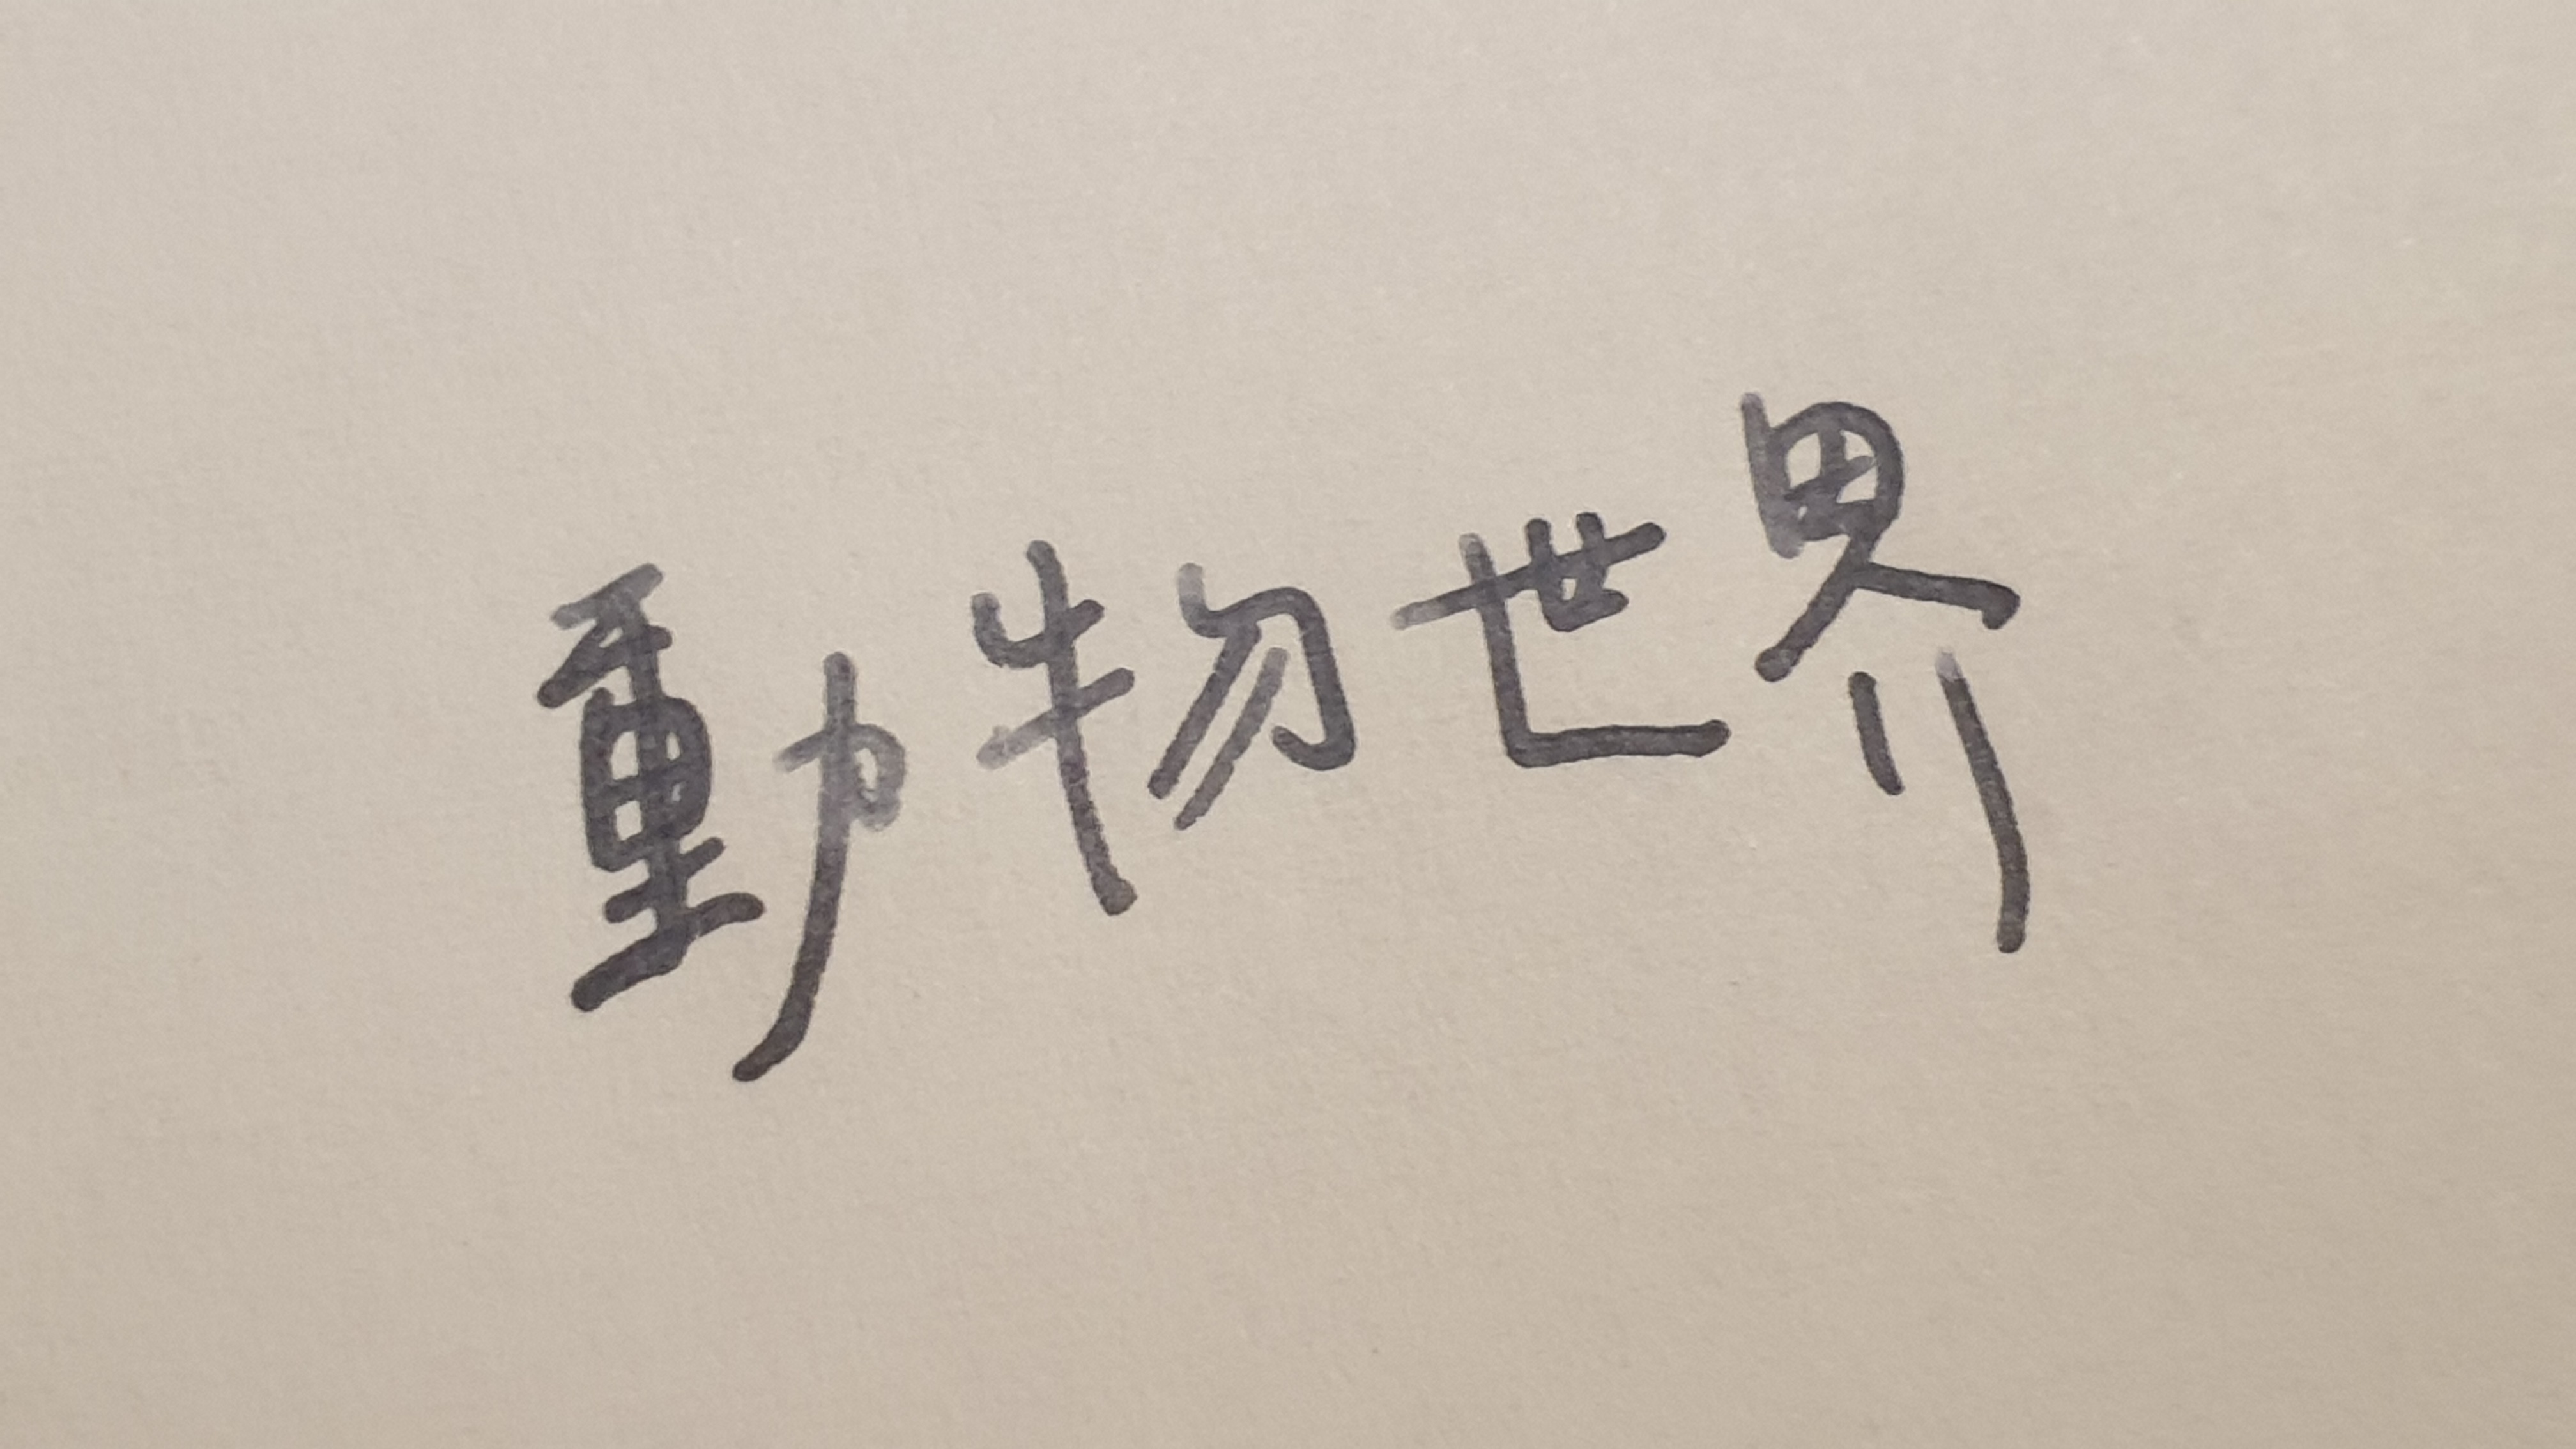 動物世界